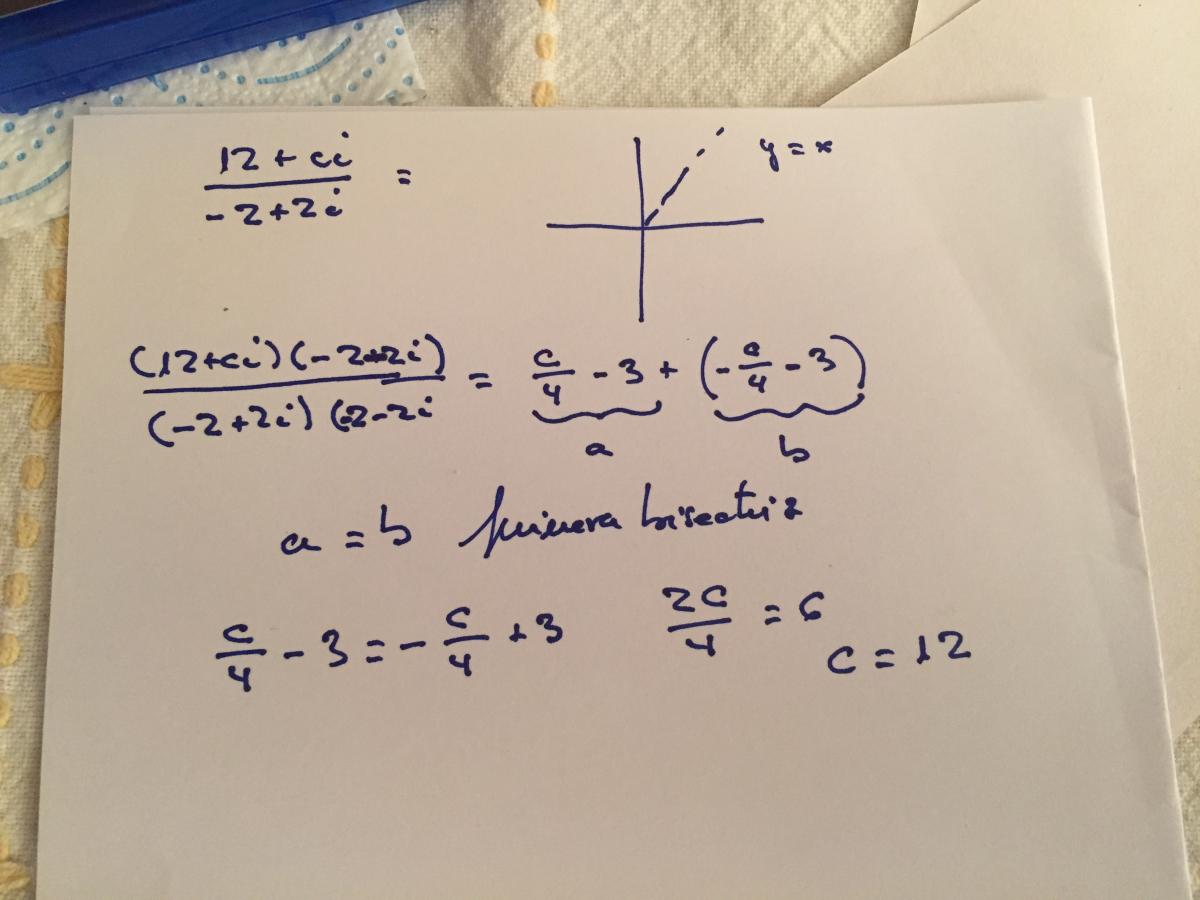 12 + ci
-2+2i
=
y = x
(12+ci)(-2+2i)
(-2+2i)(-2-2i
= c/4 - 3 + (-c/4 - 3)
a
b
a = b primera bisectriz
c/4 - 3 = - c/4 + 3
2c/4 = 6
c = 12